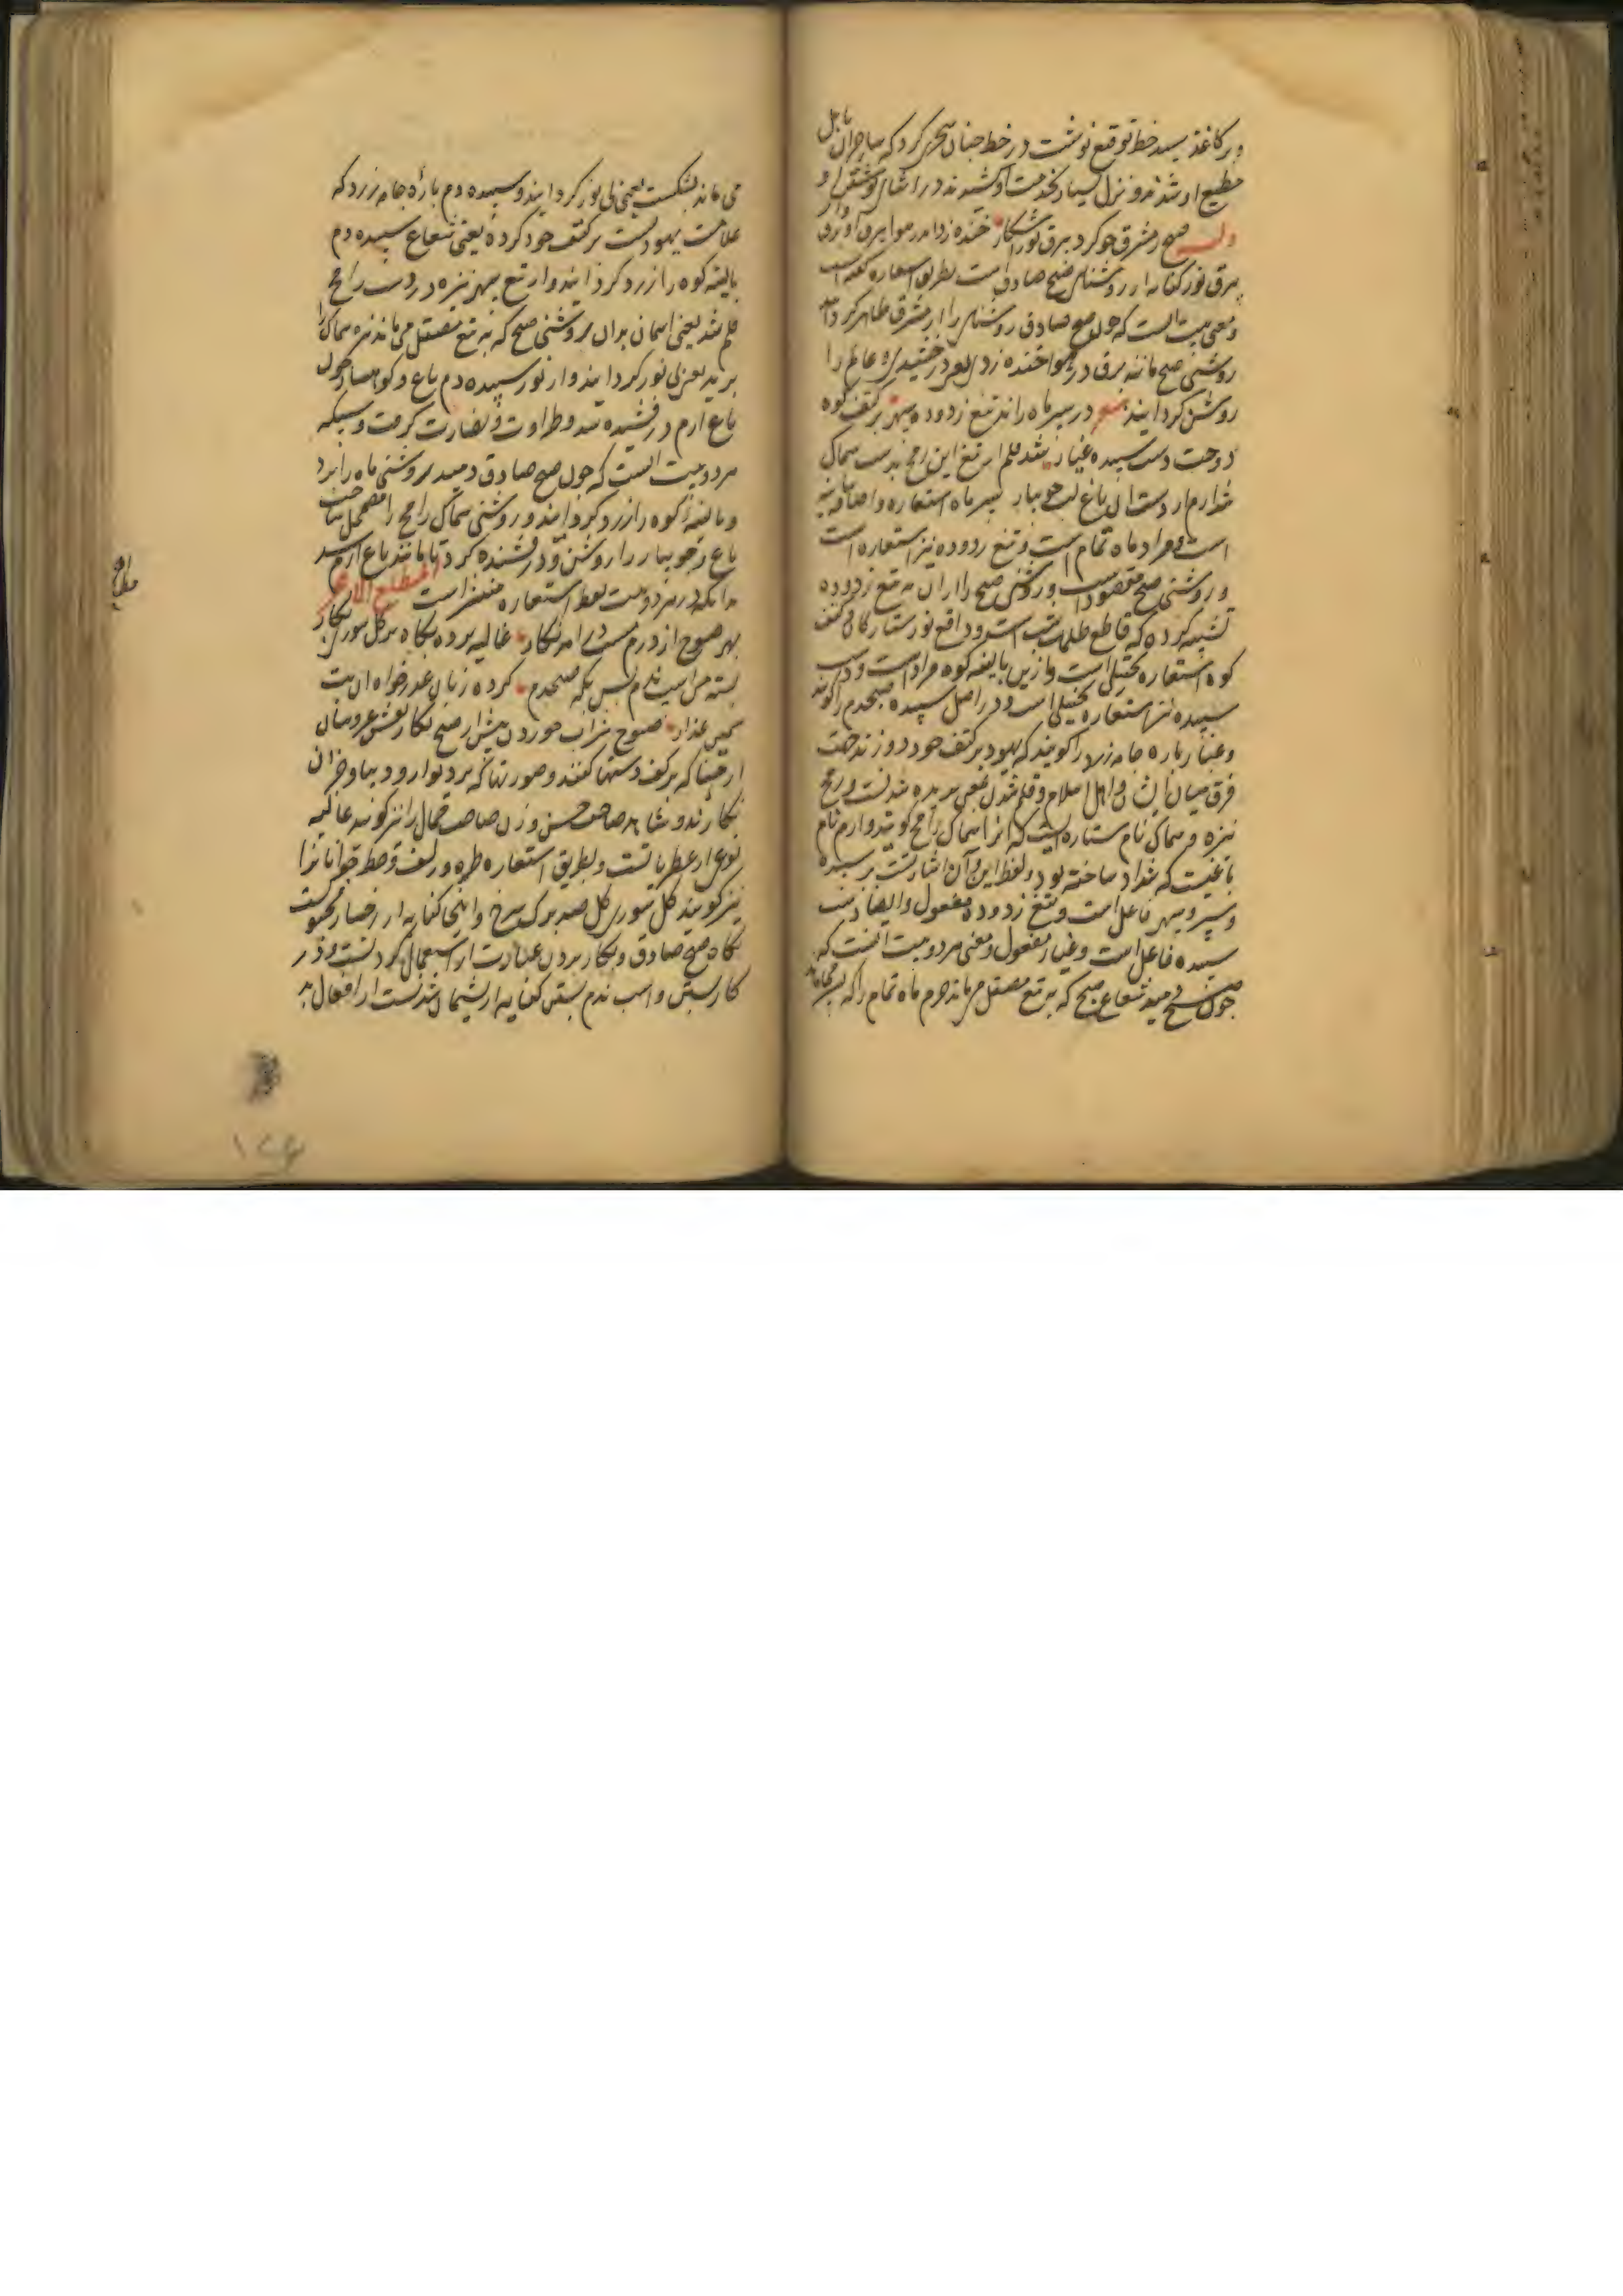 ور کاغذ سپید خط توقیع نوشت در خط چنان سحری کرد که ساحران بابل
مطیع او شدند و نزل بسیار بخدمت او کشیدند در اثنای نوشتن او
صبح ز مشرق چو کرد برق نور آشکار خنده زد اندر هوا برق او برق وار
برق نور کنایه از روشنای صبح صادق است بطریق استعاره گفته است
و معنی بیت آنست که چون صبح صادق روشنای را از مشرق ظاهر کردانید
روشنی صبح مانند برق در هوا خنده زد یعنی درخشید و عالم را
روشن کردانید در سپر ماه راند تیغ زدوده سپهر بر کتف کوه
دوخت دست سپیده غیار شد قلم از تیغ این رمح بدست سماک
شد ارم از دست آن باغ لب جویبار سپر ماه استعاره و اضافه
است و مراد ماه تمام است و تیغ زدوده نیز استعاره است
و روشنی صبح مقصود است و روشنی صبح را از آن به تیغ زدوده
تشبیه کرده که قاطع ظلمات شب است و دافع نور ستارگان و کتف
کوه استعاره تخییلی است و ازین بالیغه کوه مراد است و دست
سپیده نیز استعاره تخییلی است و در اصل سپیده صبحدم را کویند
و غیار پاره جامه زرد را کویند که یهود بر کتف خود دوزند جهت
فرق میان ایشان و اهل اسلام و قلم شدن یعنی بریده شدنست و رمح
نیزه و سماک نام ستاره ایست که آنرا سماک رامح کویند و ارم نام
باغیست که شداد ساخته بود و لفظ این و آن اشارتست بر سپیده
و سپر و سپهر فاعل است و تیغ زدوده مفعول و ایضا دست
سپیده فاعل است و غیار مفعول و معنی هر دو بیت آنست که
چون صبح دمید شعاع صبح که به تیغ مصقل می ماند جرم ماه تمام را که
می ماند بشکست یعنی بی نور کردانید و سپیده دم پاره جامه زرد که
علامت یهودست بر کتف خود کرده یعنی شعاع سپیده دم
بالیغه کوه را زرد کردانید و از تیغ سپهر نیزه در دست رامح
قلم شد یعنی آسمان بدان روشنی صبح که به تیغ مصقل می ماند نیزه سماک را
برید یعنی بی نور کردانید و از نور سپیده دم باغ و کوهسار چون
باغ ارم درفشیده شد و طراوت و نضارت کرفت و سبکه
هر دو بیت آنست که چون صبح صادق دمید روشنی ماه را برد
و بالیغه کوه را زرد کردانید و روشنی سماک رامح را مضمحل ساخت
باغ و جویبار را روشن و درفشنده کرد تا مانند باغ ارم شد
بدانکه در هر دو بیت لفظ استعاره مضمر است المطلع الاخر
بهر صبوح از درم مست در آمد نکار غالیه برده بکاه بر کل سوری بکار
بسته مرا سپ ندم بس بکه صبحدم کرده زبان عذرخواه آن بت
سیمین عذار صبوح شراب خوردن پیش از صبح نکار نقش عروسان
از حنا که بر کف دستها کنند و صورتها که بر دیوار و دیبا و جز آن
نکارند و شاهد صاحب حسن و زن صاحب جمال را نیز کویند غالیه
نوعی از عطریاتست و بطریق استعاره طره و زلف و خط جوانان را
نیز کویند کل سوری کل صد برک سرخ و اینجا کنایه از رخسار محبوبست
بکاه صبح صادق و بکار بردن عبارت از استعمال کردنست و در
کار بستن و اسب ندم بستن کنایه از پشیمان شدنست از افعال بد
مطلع